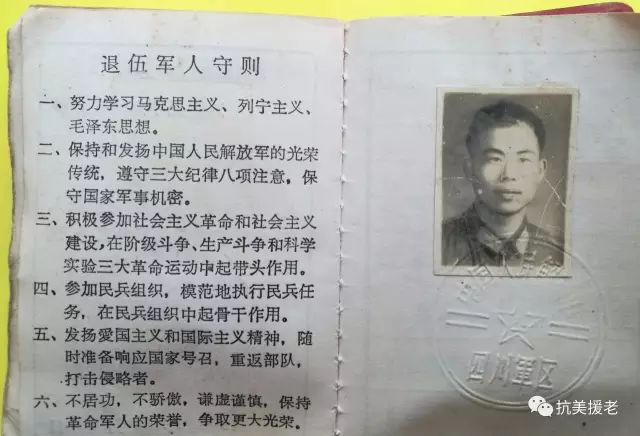 退伍军人守则
一、努力学习马克思主义、列宁主义、
毛泽东思想。
二、保持和发扬中国人民解放军的光荣
传统，遵守三大纪律八项注意，保
守国家军事机密。
三、积极参加社会主义革命和社会主义
建设，在阶级斗争、生产斗争和科学
实验三大革命运动中起带头作用。
四、参加民兵组织，模范地执行民兵任
务，在民兵组织中起骨干作用。
五、发扬爱国主义和国际主义精神，随
时准备响应国家号召，重返部队，
打击侵略者。
六、不居功，不骄傲，谦虚谨慎，保持
革命军人的荣誉，争取更大光荣。
四川军区
抗美援老